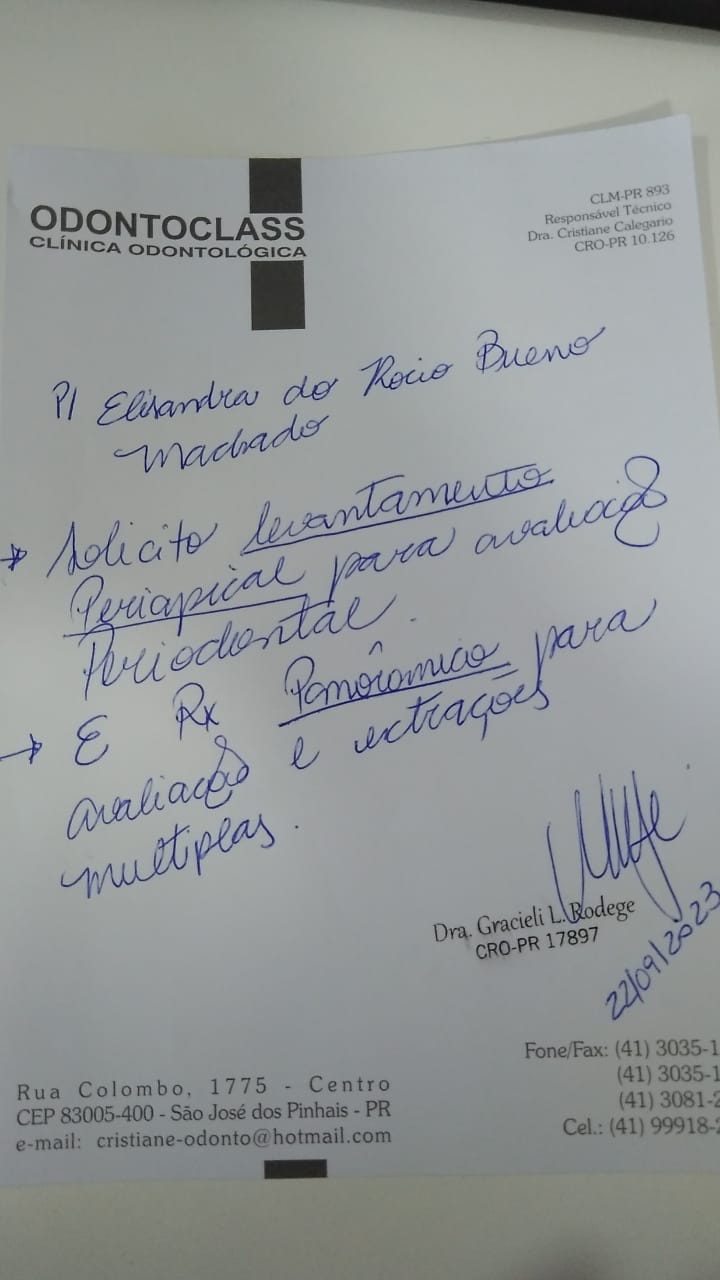 ODONTOCLASS
CLÍNICA ODONTOLÓGICA
CLM-PR 893
Responsável Técnico
Dra. Cristiane Calegario
CRO-PR 10.126
P/ Elisandra do Rocio Bueno
Machado
→ Solicito levantamento
Periapical para avaliação
Periodontal.
→ E Rx Panorâmico para
avaliação e extrações
multiplas.
Dra. Gracieli L. Rodege
CRO-PR 17897
22/09/2023
Rua Colombo, 1775 - Centro
CEP 83005-400 - São José dos Pinhais - PR
e-mail: cristiane-odonto@hotmail.com
Fone/Fax: (41) 3035-1
(41) 3035-1
(41) 3081-2
Cel.: (41) 99918-2